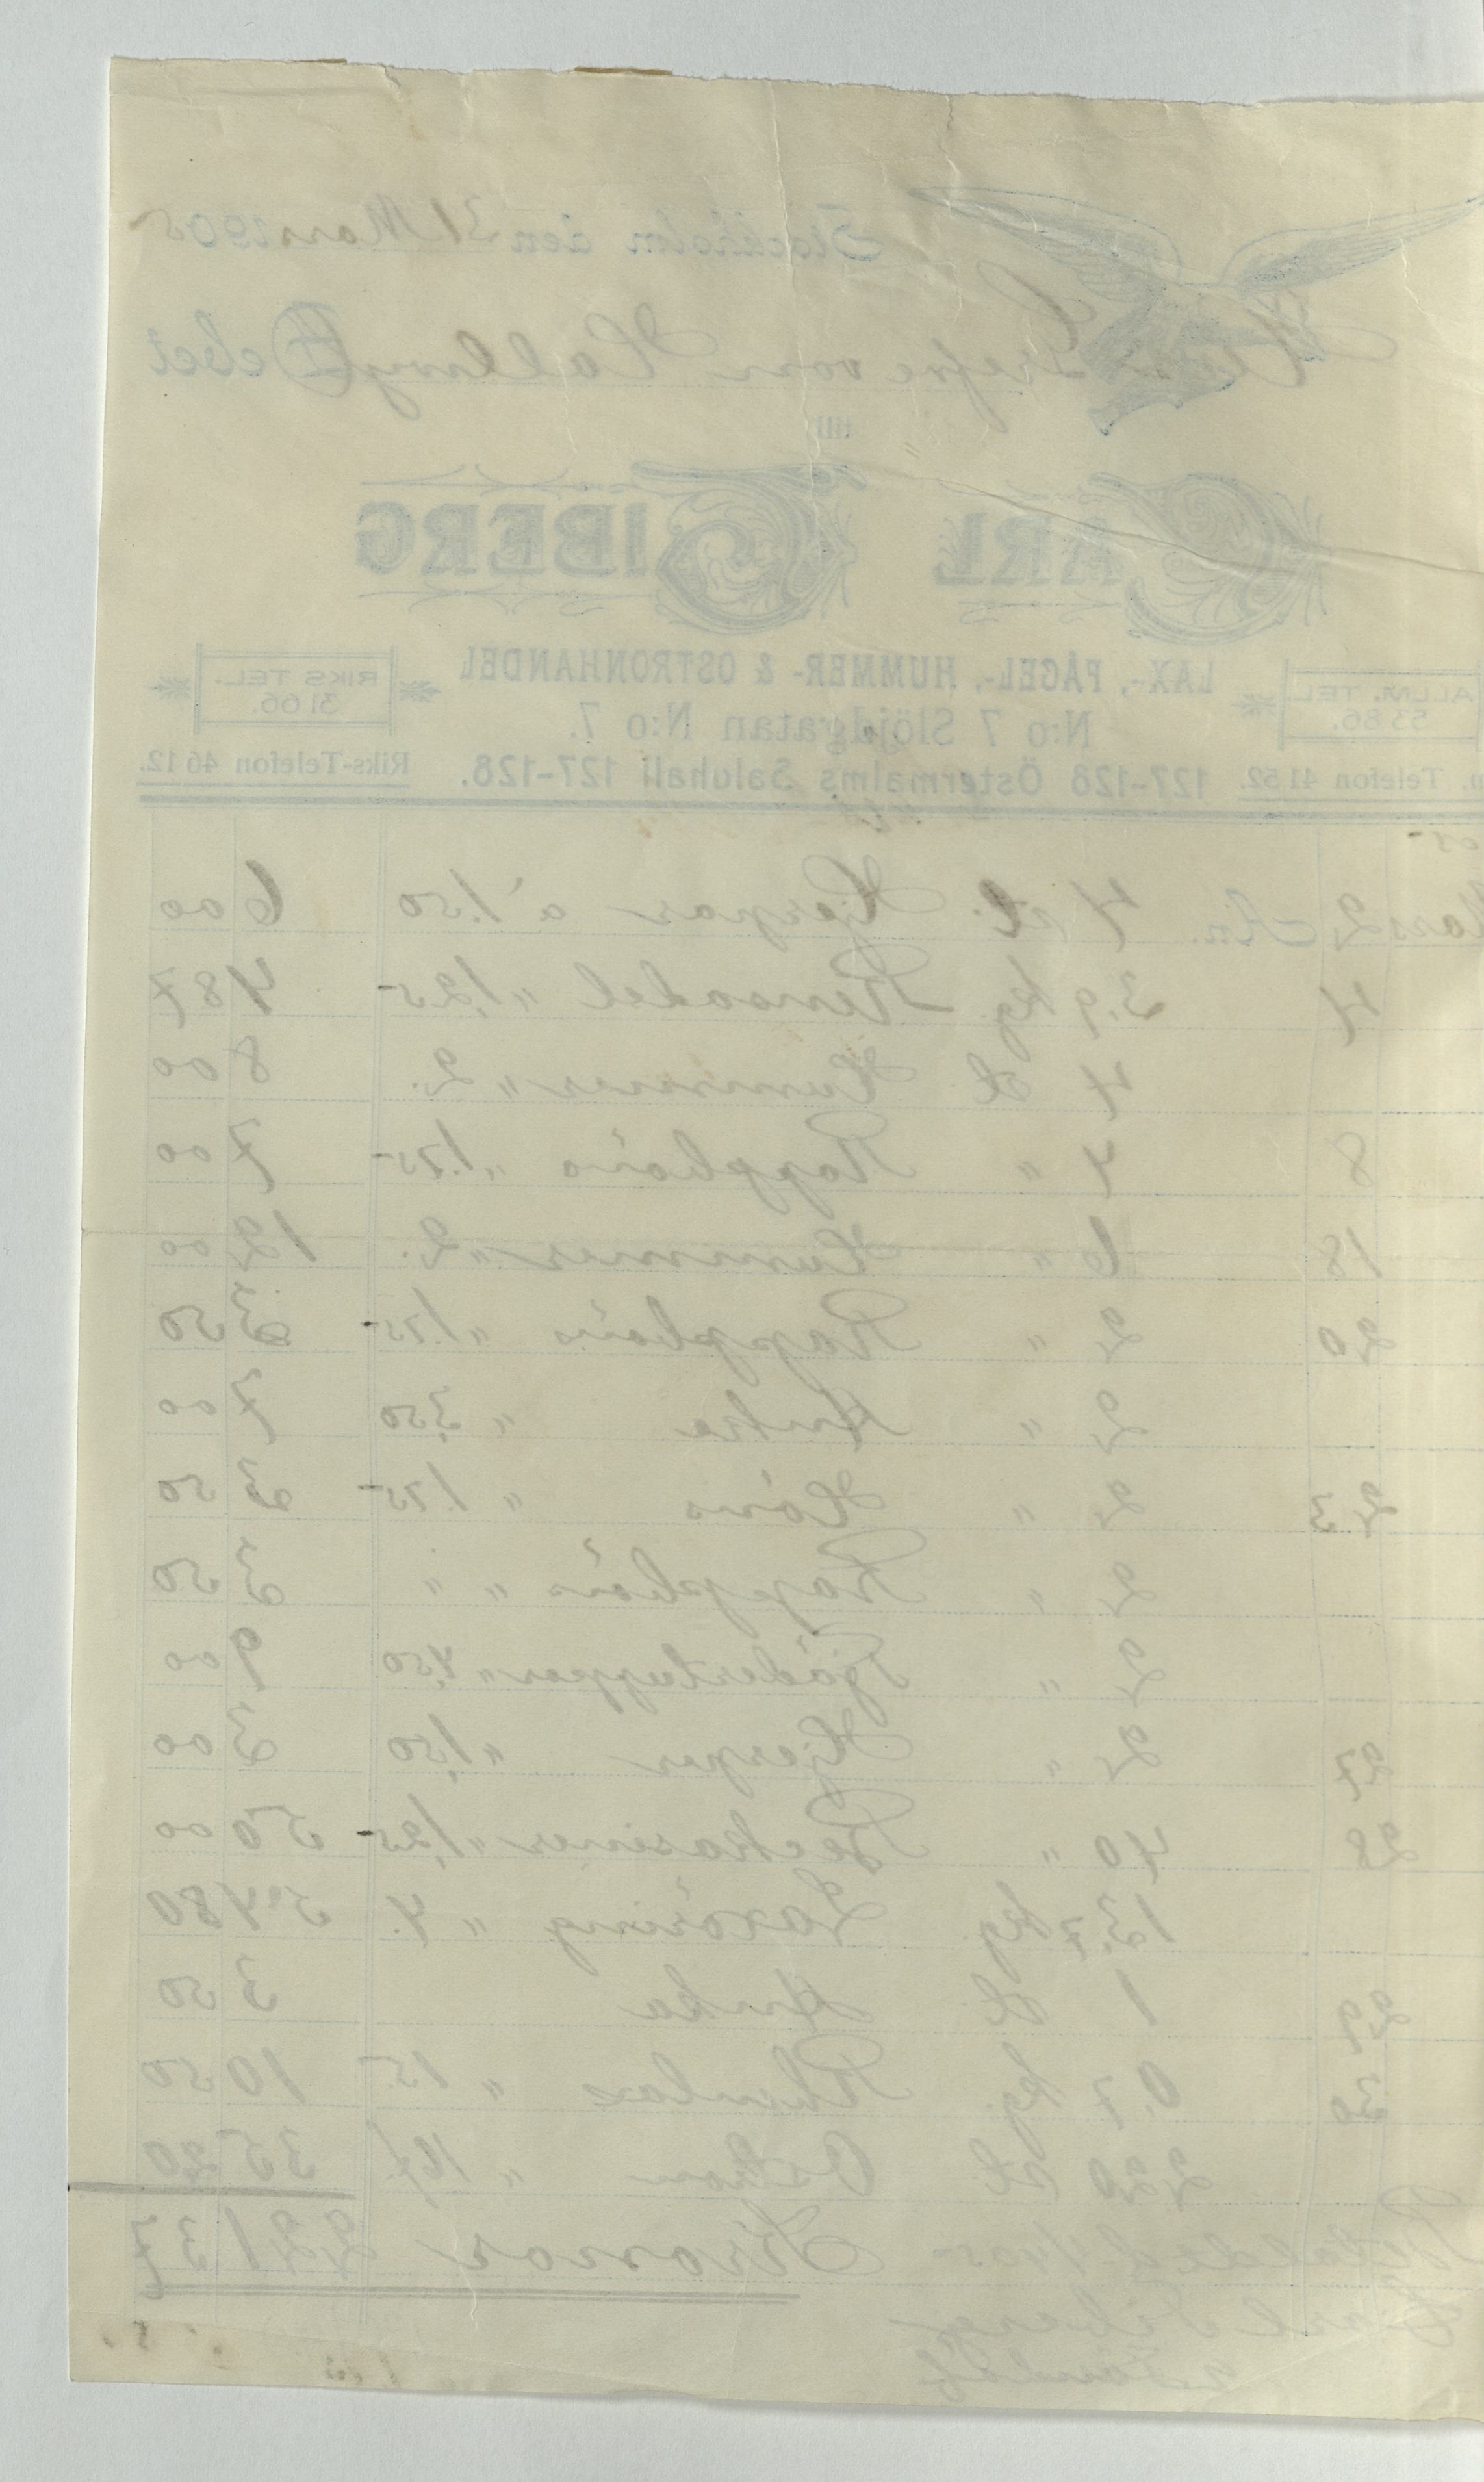 Stockholm den 31 Mars 1905
Grefve von Hallwyl Debet
till
CARL SIBERG
LAX-, FÅGEL-, HUMMER- & OSTRONHANDEL
ALLM. TEL. 53 86.
RIKS TEL. 31 66.
N:o 7 Slöjdgatan N:o 7.
Telefon 41 52. 127-128 Östermalms Saluhall 127-128. Riks-Telefon 46 12.
05
Mars 2 4 st. Hjerpar à 1.50 6 00
4 3,9 kg. Rensadel " 1,25 4 87
4 st Hummer " 2. 8 00
8 4 " Rapphöns " 1.75 7 00
18 6 " Hummer " 2. 12 00
20 2 " Rapphöns " 1.75 3 50
2 " Anka " 3,50 7 00
23 2 " Höns " 1.75 3 50
2 " Rapphöns " " 3 50
2 " Tjädertuppar " 4,50 9 00
27 2 " Hjerpar " 1,50 3 00
28 40 " Beckasiner " 1,25 50 00
13,7 kg. Laxöring " 4. 54 80
29 1 st Anka 3 50
30 0,7 kg. Rhenlax " 15 10 50
220 st. Ostron " 16/ 35 20
Kronor 221 37
Carl Siberg